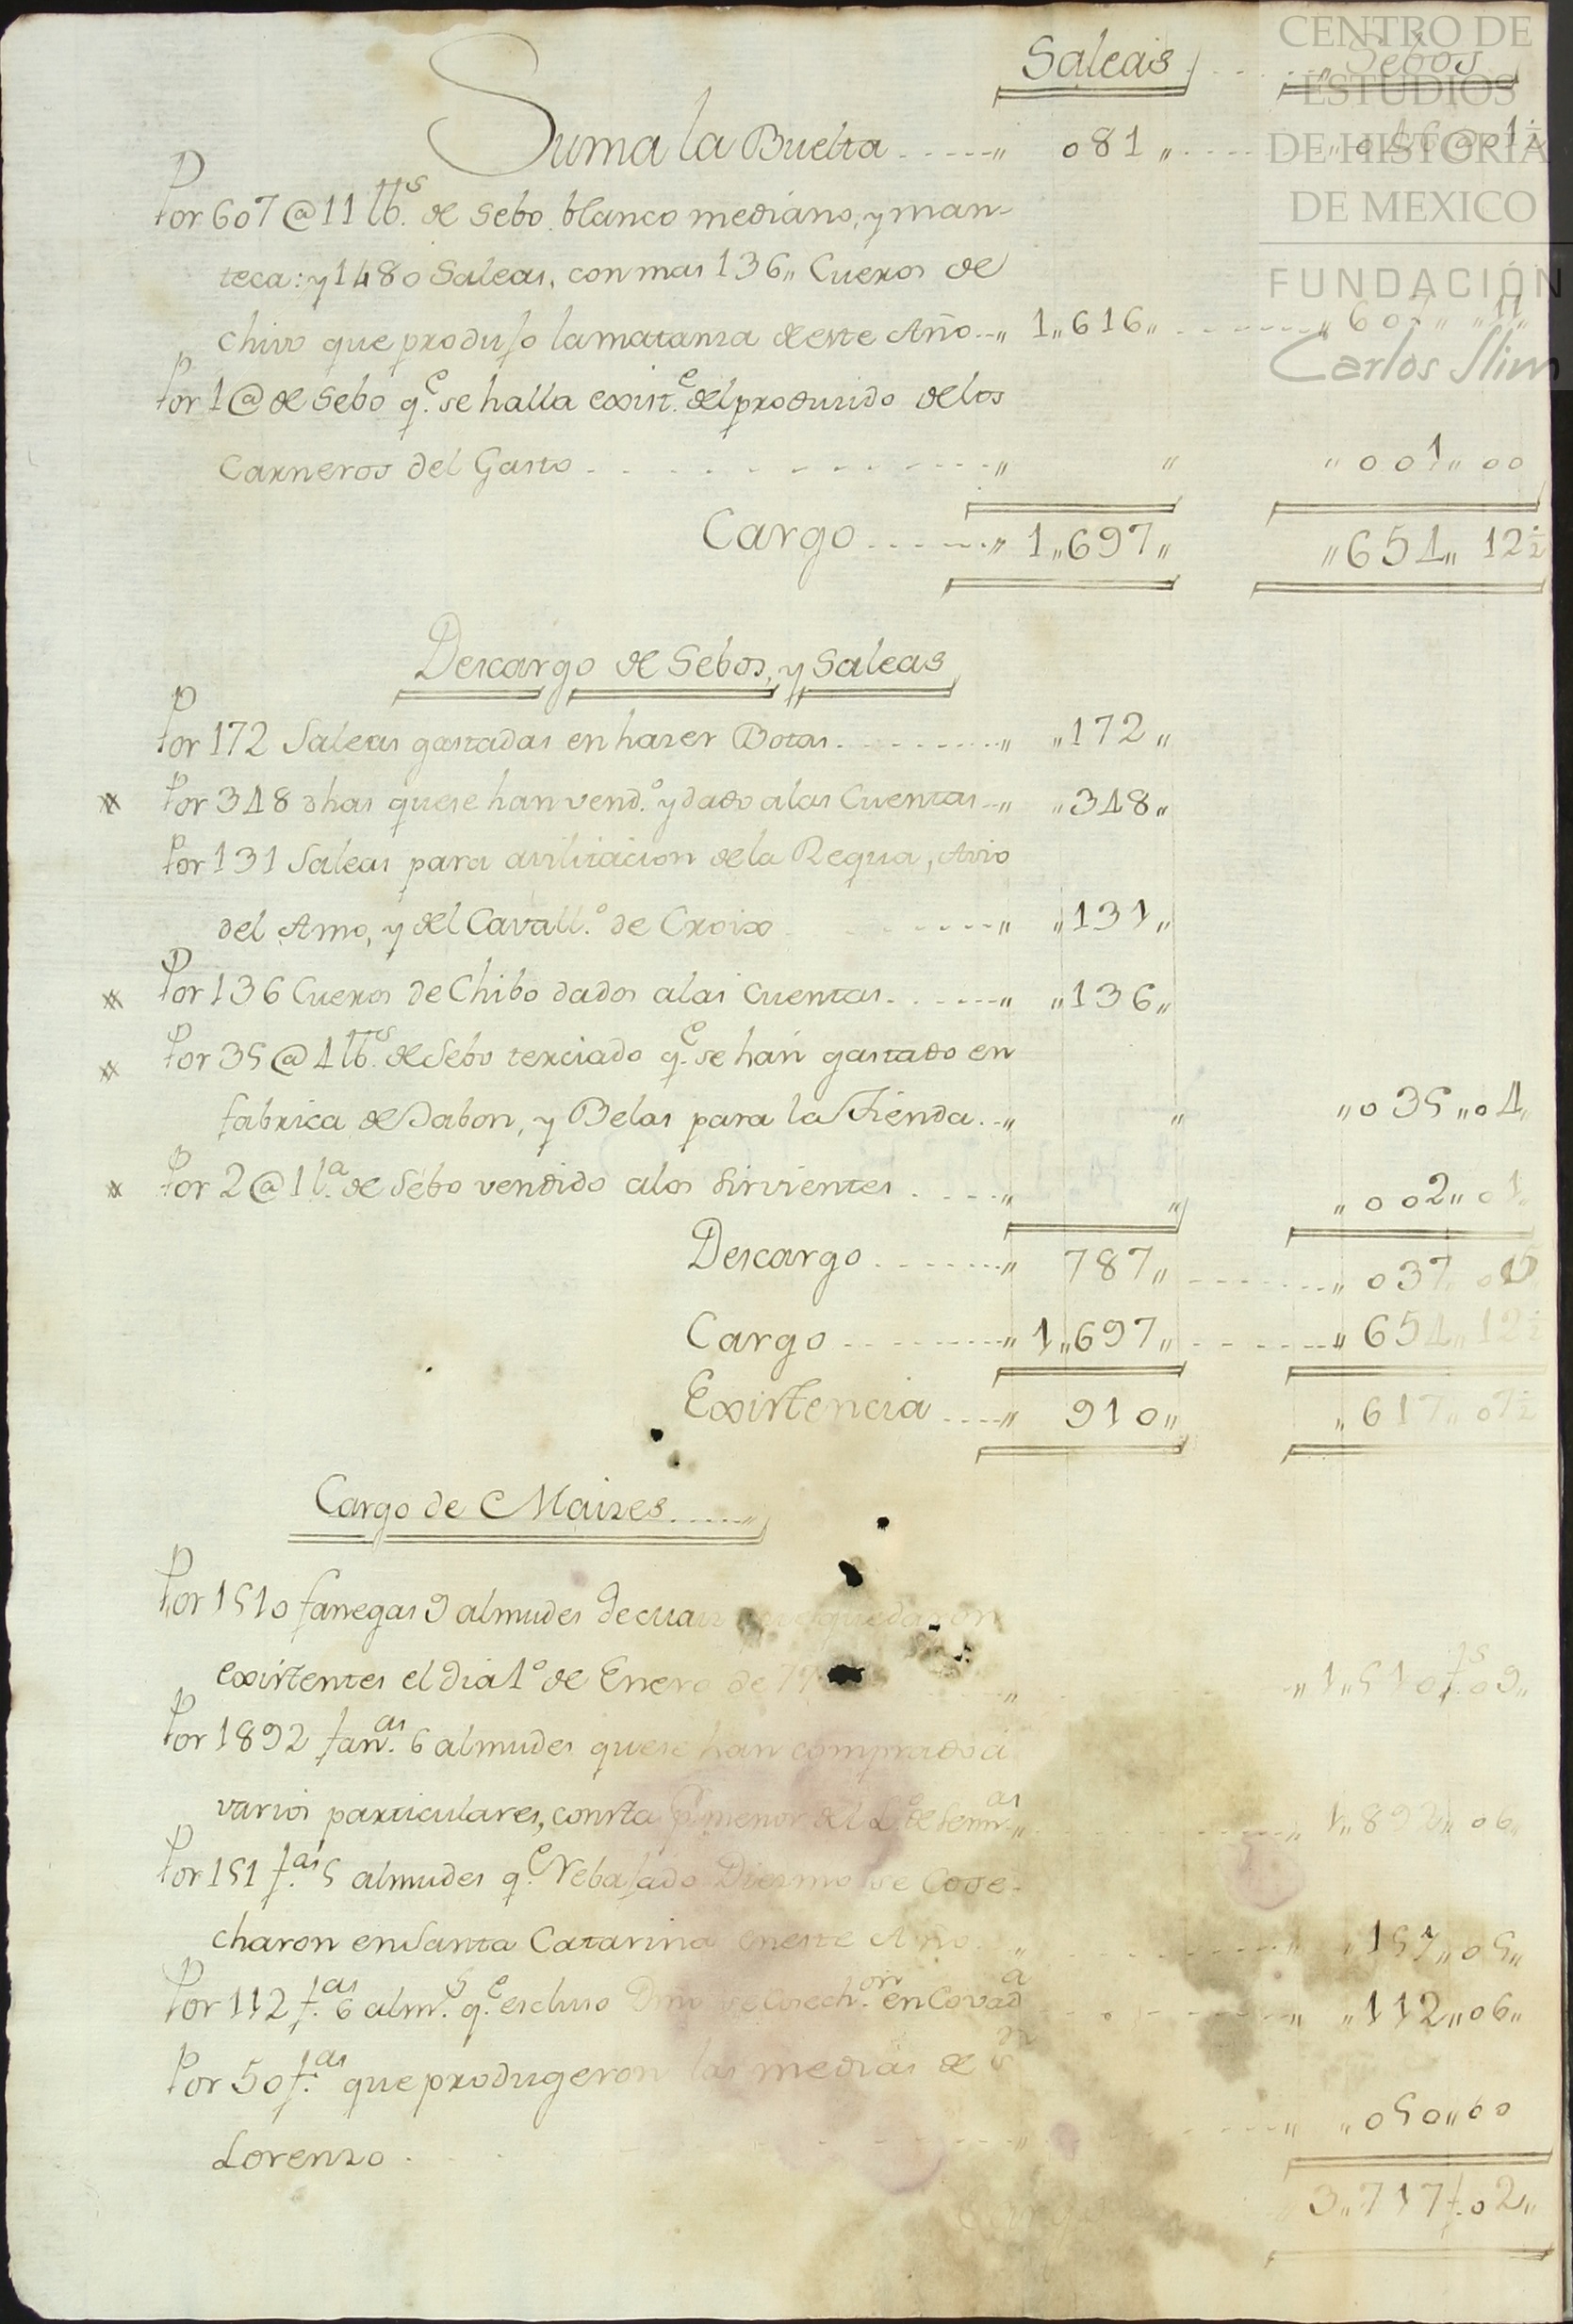 Saleas ..... „ Sebos
Suma la Buelta ..... „ 081 „ ..... „ 046 @ 01 ½
Por 607 @ 11 lb.s de Sebo blanco mediano, y man-
teca: y 1480 Saleas, con mas 136„ Cueros de
chivo que produjo la matanza de este Año .. „ 1„616„ ..... „ 607„ „11„
Por 1 @ de Sebo q.e se halla exist.e del produzido de los
Carneros del Gasto ..... „ „ „ 001„ 00
Cargo ..... „ 1„697„ „654„ 12 ½
Descargo de Sebos, y Saleas
Por 172 Saleas gastadas en hazer Botas ..... „ „172„
Por 348 dhas que se han vend.o y dado a las Cuentas .. „ „348„
Por 131 Saleas para avilitacion de la Requa, Avio
del Amo, y del Cavall.o de Croix ..... „ „131„
Por 136 Cueros de Chibo dados a las Cuentas ..... „ „136„
Por 35 @ 4 lb.s de Sebo terciado q.e se han gastado en
fabrica de Jabon, y Belas para la Tienda .. „ „ „035„04„
Por 2 @ 1 l.a de Sebo vendido a los Sirvientes .... „ „ „002„01„
Descargo ..... „ 787„ ..... „ 037„ 05
Cargo ..... „ 1„697„ ..... „ 654„ 12 ½
Existencia .... „ 910„ „ 617„ 07 ½
Cargo de Maizes .....„
Por 1510 fanegas 9 almudes de maiz que quedaron
existentes el dia 1º de Enero de 77 „ „1„510f.s 09„
Por 1892 fan.as 6 almudes que se han comprado a
varios particulares, consta p.r menor del L.o de Sem.as „ ..... „ 1„892„ 06„
Por 151 f.as 5 almudes q.e rebajado Diezmo se Cose-
charon en Santa Catarina en este Año. „ ..... „ „151„05„
Por 112 f.as 6 alm.s q.e escluso Dmo se Cosech.on en Covad.a ..... „ „112„06„
Por 50 f.as que produgeron las medias de S.n
Lorenzo ..... „ ..... „ „050„00
Cargo 3„717f.02„
CENTRO DE
ESTUDIOS
DE HISTORIA
DE MEXICO
FUNDACIÓN
Carlos Slim